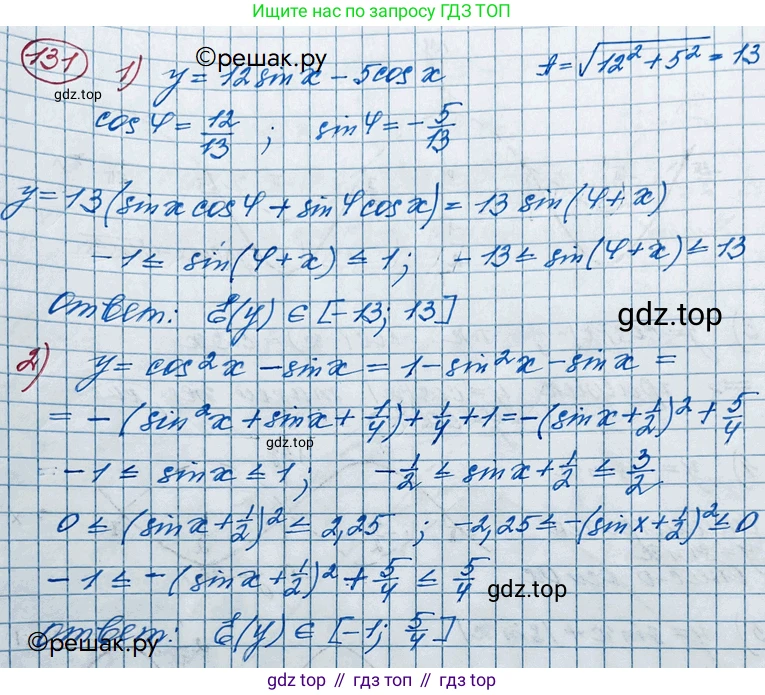 Ищите по запросу ГДЗ ТОП
131
1) y = 12 sin x - 5 cos x
A = √(12² + 5²) = 13
©решак.ру
gdz.top
cos φ = 12/13 ; sin φ = - 5/13
y = 13 (sin x cos φ + sin φ cos x) = 13 sin(φ + x)
-1 ≤ sin(φ + x) ≤ 1 ; -13 ≤ sin(φ + x) ≤ 13
Ответ: E(y) ∈ [-13; 13]
gdz.top
2) y = cos²x - sin x = 1 - sin²x - sin x =
= - (sin²x + sin x + 1/4) + 1/4 + 1 = -(sin x + 1/2)² + 5/4
gdz.top
-1 ≤ sin x ≤ 1 ; -1/2 ≤ sin x + 1/2 ≤ 3/2
0 ≤ (sin x + 1/2)² ≤ 2,25 ; -2,25 ≤ -(sin x + 1/2)² ≤ 0
-1 ≤ -(sin x + 1/2)² + 5/4 ≤ 5/4
gdz.top
Ответ: E(y) ∈ [-1; 5/4]
©решак.ру
gdz.top
gdz.top // gdz.top // gdz.top // gdz.top